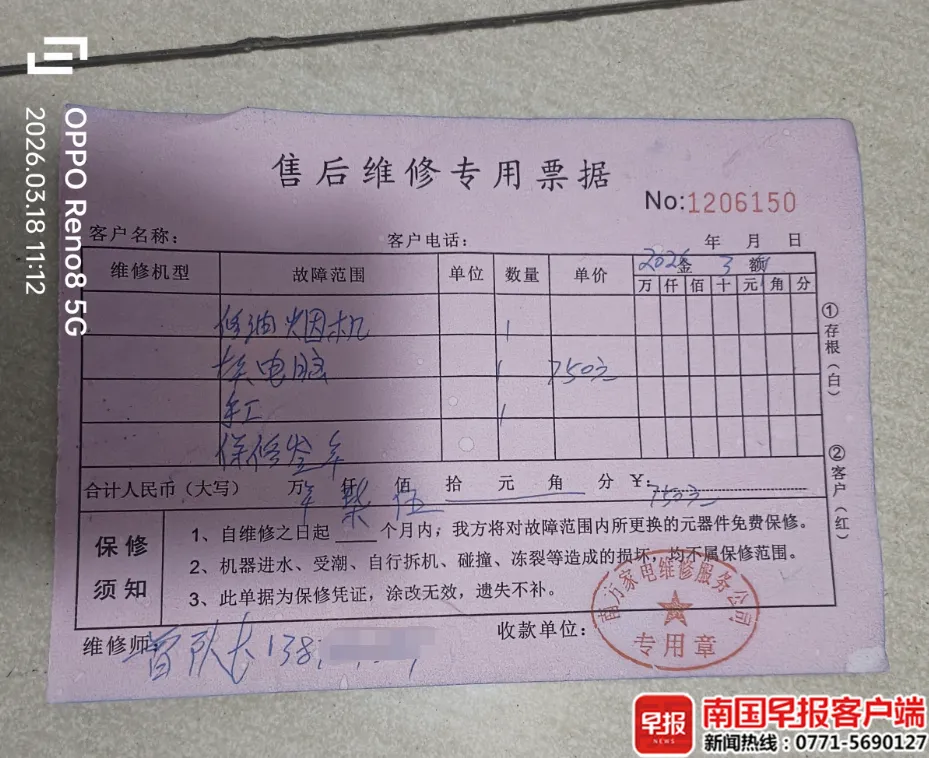 OPPO Reno8 5G
2026.03.18 11:12
售后维修专用票据
No:1206150
客户名称：
客户电话：
年 月 日
2026 3
维修机型 故障范围 单位 数量 单价 金额
万 仟 佰 十 元 角 分
修油烟机 1
换电脑 1 750元
手工 1
保修壹年
合计人民币（大写） 万 仟 佰 拾 元 角 分 ¥：750元
柒 伍
保修须知
1、自维修之日起 个月内，我方将对故障范围内所更换的元器件免费保修。
2、机器进水、受潮、自行拆机、碰撞、冻裂等造成的损坏，均不属保修范围。
3、此单据为保修凭证，涂改无效，遗失不补。
维修师：
队长138
收款单位：
万家电维修服务公司
专用章
①存根（白）
②客户（红）
早报
NEWS
南国早报客户端
新闻热线：0771-5690127